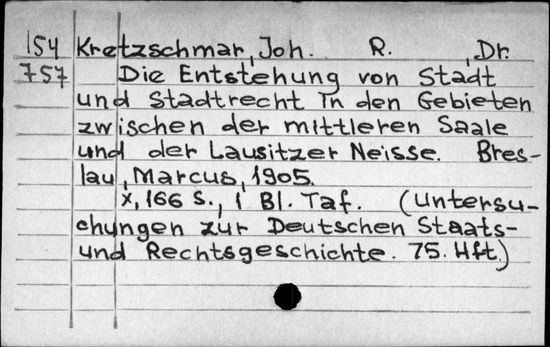 154 Kretzschmar, Joh. R. , Dr.
757 Die Entstehung von Stadt
und Stadtrecht in den Gebieten
zwischen der mittleren Saale
und der Lausitzer Neisse. Bres-
lau, Marcus, 1905.
X, 166 S., 1 Bl. Taf. (Untersu-
chungen zur Deutschen Staats-
und Rechtsgeschichte. 75. Hft.)